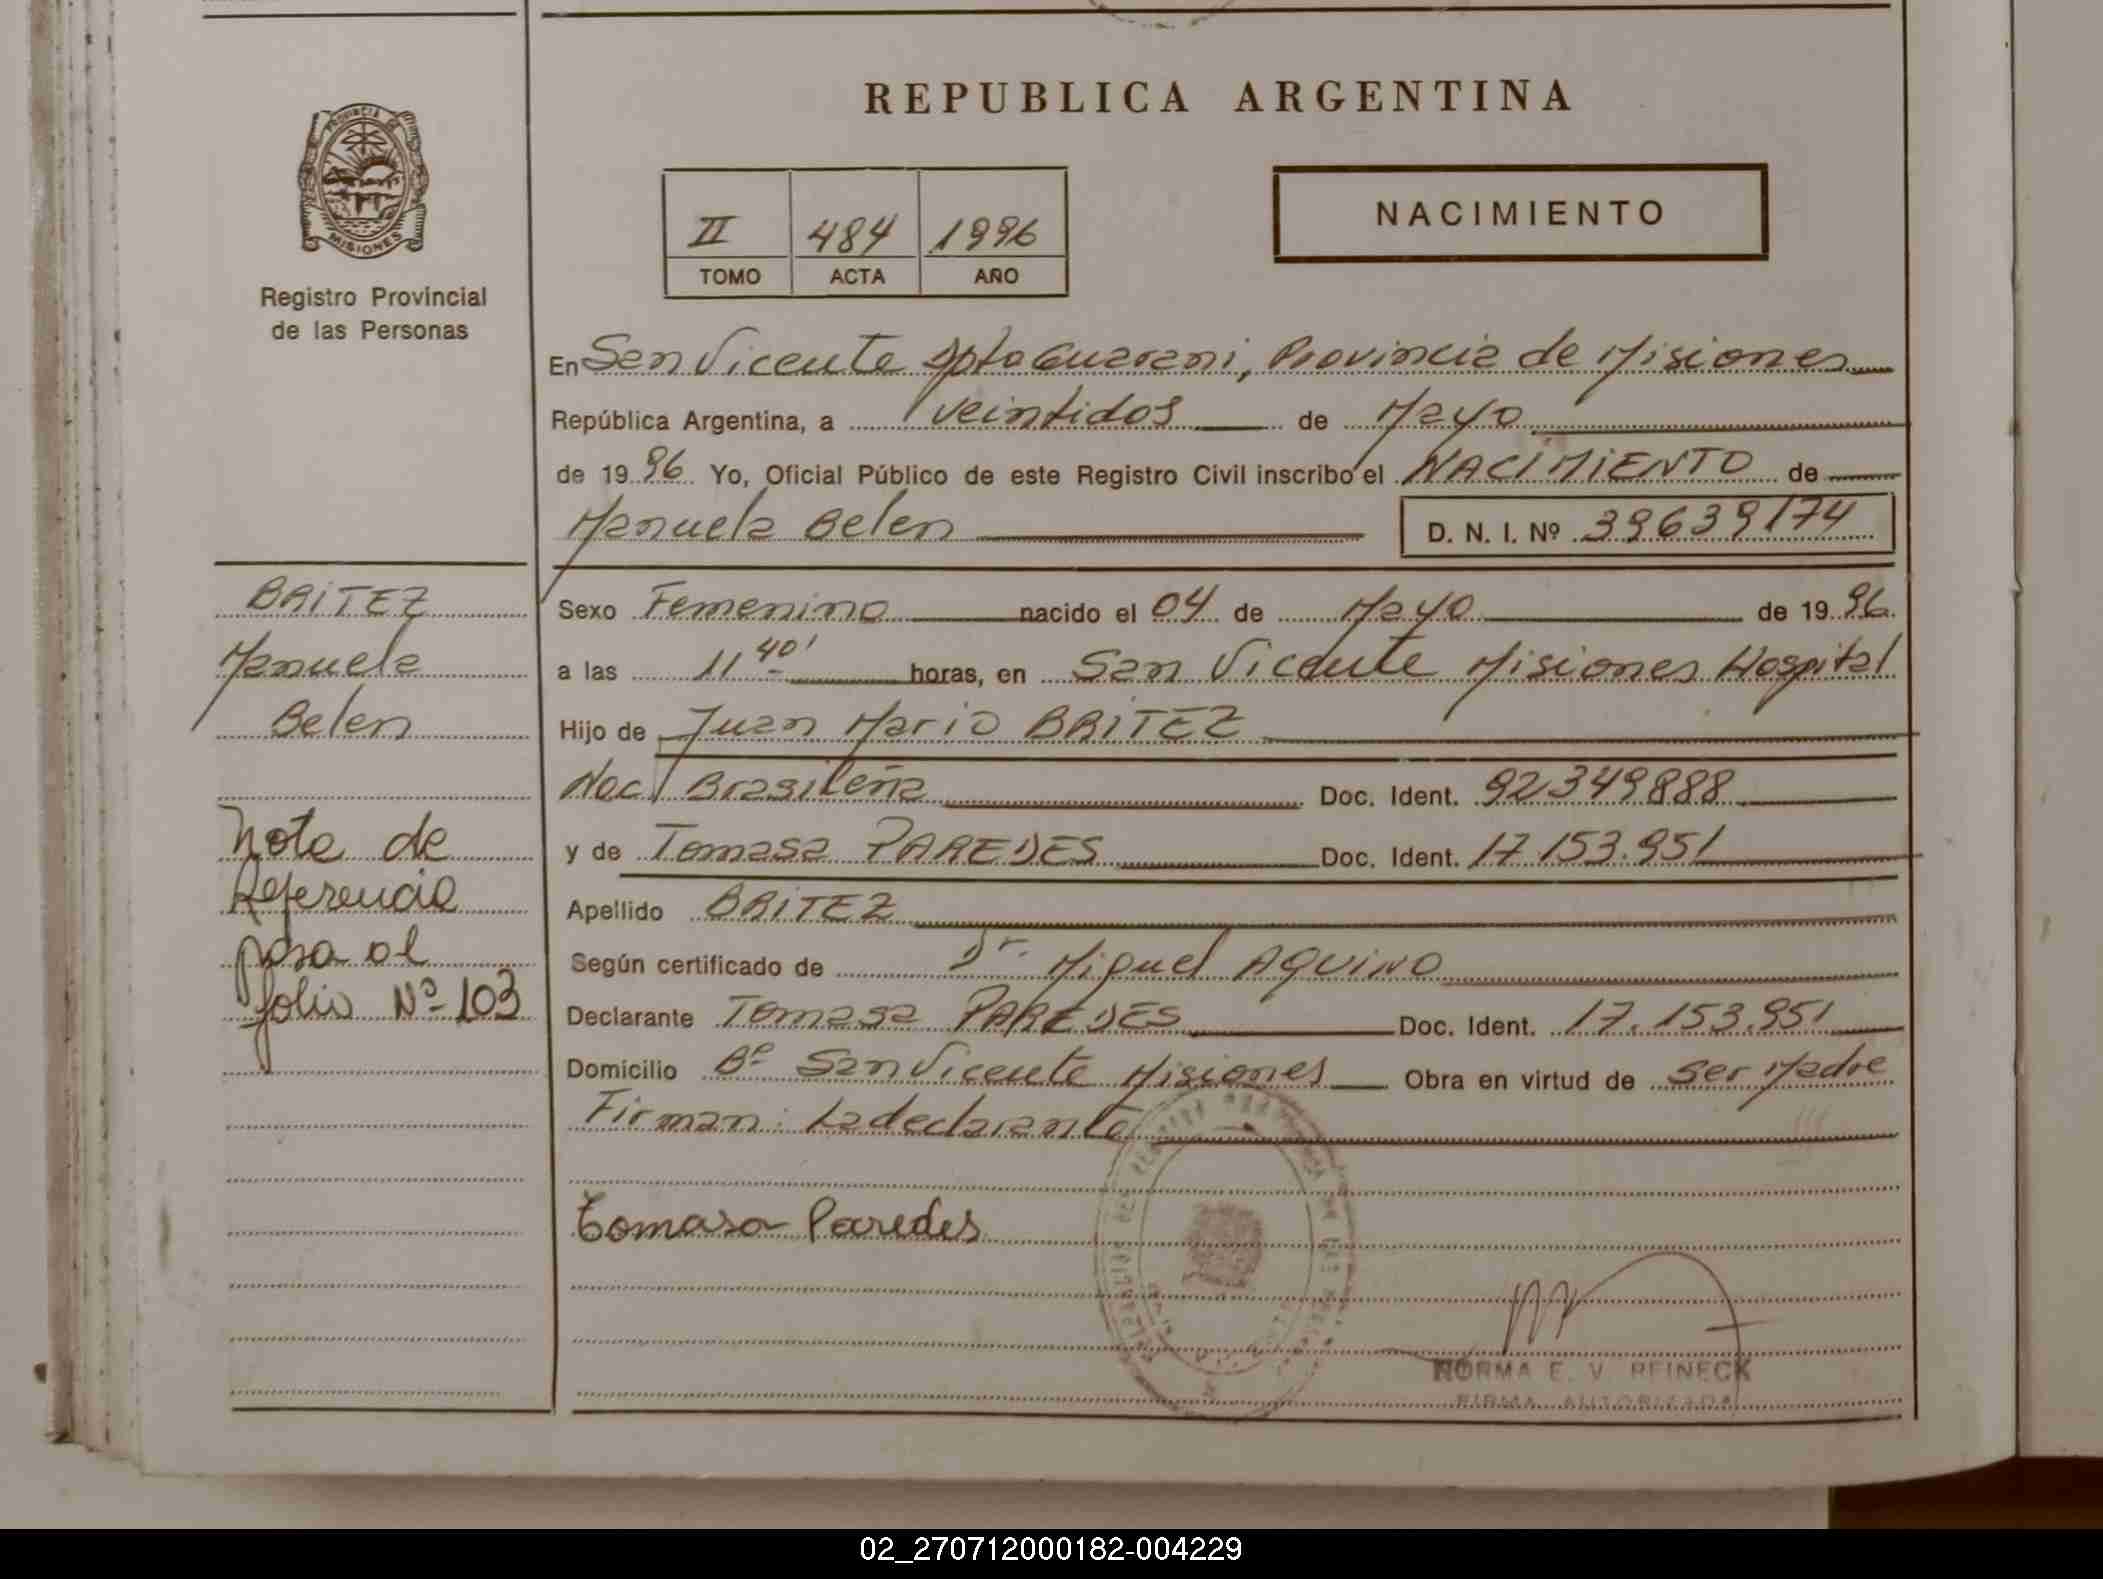 REPUBLICA ARGENTINA
PROVINCIA DE
MISIONES
Registro Provincial
de las Personas
II 484 1996
TOMO ACTA AÑO
NACIMIENTO
En San Vicente Dpto Guarani, Provincia de Misiones
República Argentina, a veintidos de Mayo
de 1996 Yo, Oficial Público de este Registro Civil inscribo el NACIMIENTO de
Manuela Belen D. N. I. Nº 39639174
BRITEZ
Manuela
Belen
Nota de
Referencia
pasa al
folio Nº 103
Sexo Femenino nacido el 04 de Mayo de 1996
a las 11 40' horas, en San Vicente Misiones Hospital
Hijo de Juan Mario BRITEZ
Nac/ Brasileña Doc. Ident. 92349888
y de Tomasa PAREDES Doc. Ident. 17 153.951
Apellido BRITEZ
Según certificado de Dr. Miguel AQUINO
Declarante Tomasa PAREDES Doc. Ident. 17.153.951
Domicilio Bº San Vicente Misiones Obra en virtud de ser Madre
Firman: La declarante
Tomasa Paredes
NORMA E. V. REINECK
FIRMA AUTORIZADA
02_270712000182-004229